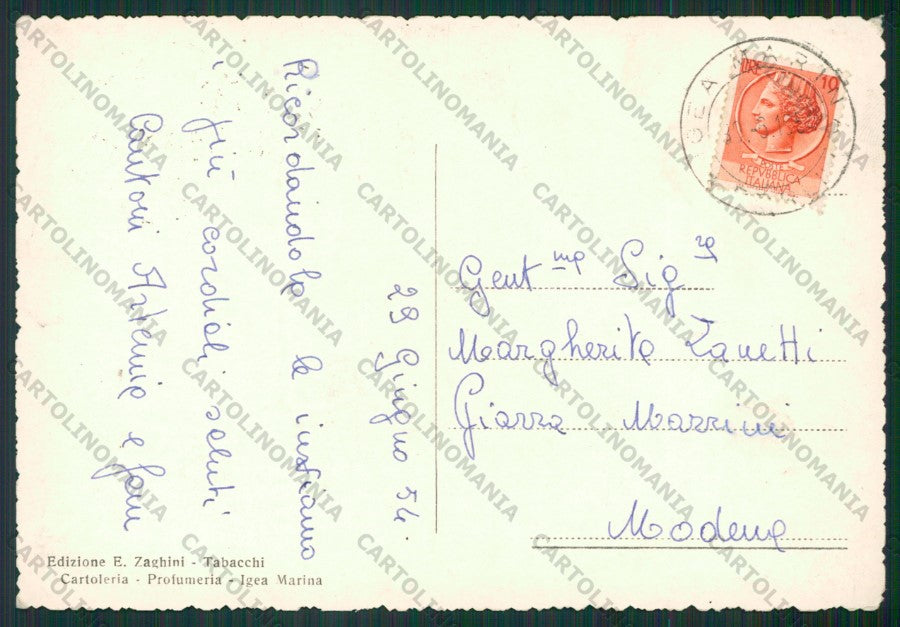 29 Giugno 54
Ricordandola le inviamo
i più cordiali saluti
Cantoni Artemie e fam
Edizione E. Zaghini - Tabacchi
Cartoleria - Profumeria - Igea Marina
IGEA MARINA
LIRE 10
POSTE
REPVBBLICA
ITALIANA
Gent.ma Sig.ra
Margherita Zanetti
Piazza Mazzini
Modena
CARTOLINOMANIA